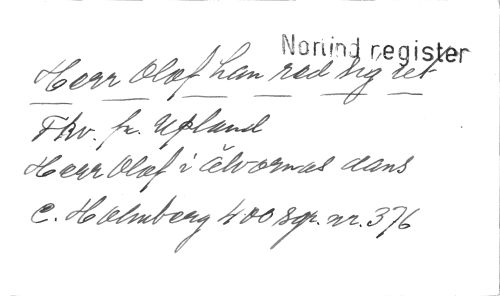 Norlind register
Herr Olof han red sig ut
Fkv. fr. Upland
Herr Olof i älvornas dans
C. Holmberg 400 sgr. nr. 376